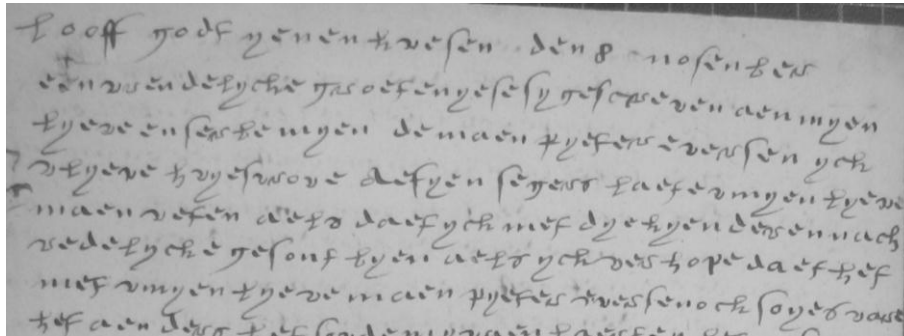 looff godt yenen hoesen den 8 nosember
een vrendelycke groetenyese sy gescreven aen myen
lyeve enserbemyen de maen pyeter eversen ych
vlyeve hvyesvrove aeltyen segers laete vmyen lyeve
maen veten aels daet ych met dye kyenderen nach
redelycke gesont byen aels ych verhope daet het
met vmyen lyeve maen pyeter eversen och soo yes vare
het aenders het